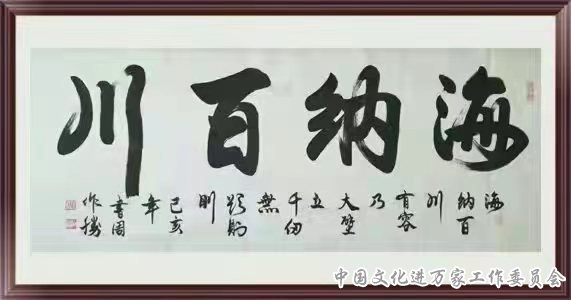 海纳百川
海纳百川有容乃大壁立千仞無欲则刚
己亥年
書周作勝
中国文化进万家工作委员会